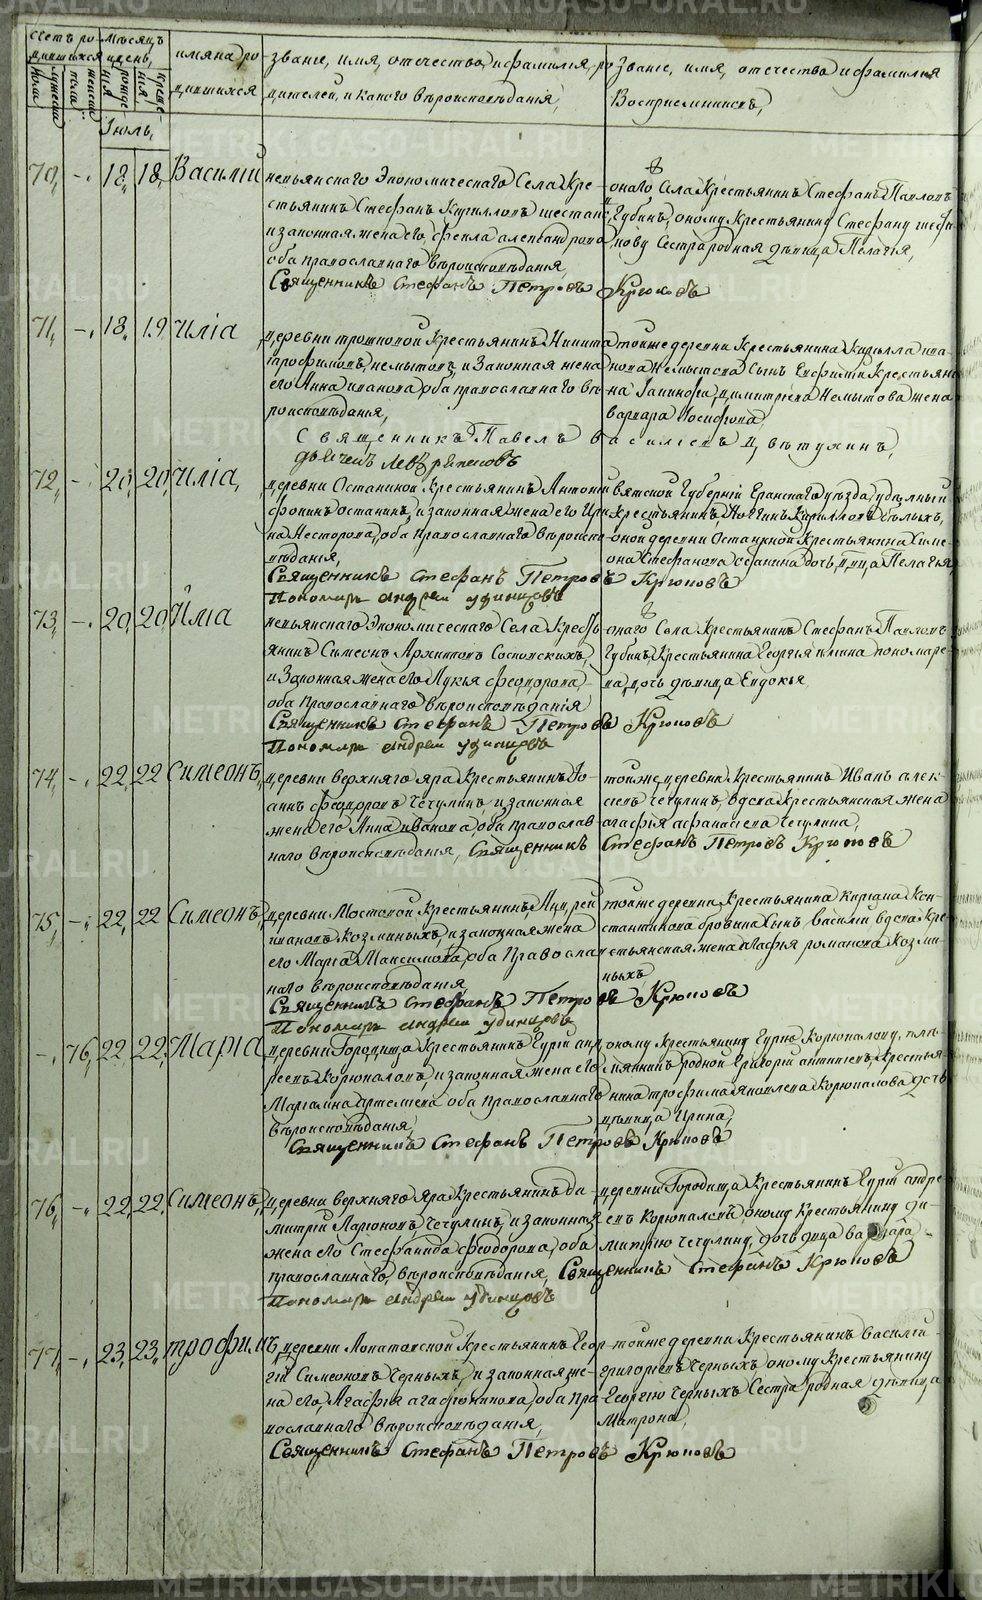 Счетъ ро- Мѣсяцъ
дившихся и день,
имяна ро-
дившихся
званіе, имя, отечество, и фамилія, ро
дителей, и какого вѣроисповѣданія,
Званіе, имя, отечество и фамилия
Восприемниковъ,
мужеска пола
женска пола
рожденія
крещенія
Іюль,
70, -. 18, 18, Василій
невьянскаго Экономическаго Села Кре-
стьянинъ Стефанъ Кирилловъ
и законная жена его, фекла александрова
оба православнаго вѣроисповѣданія,
Священникъ Стефанъ Петровъ Крюковъ
онаго Села Крестьянинъ Стефанъ Павловъ
Губинъ, оному Крестьянину Стефану
Сестра родная дѣвица Пелагія,
71, -. 18, 19, Иліа
деревни Крестьянинъ Никита
и Законная жена
его Анна иванова оба православнаго вѣ
роисповѣданія,
Священникъ Павелъ василіевъ
тойже деревни Крестьянина Кирилла ива
нова Немытова Сынъ Евфимій Крестьяни
на димитріева Немытова жена
варвара Іосифова
72, -. 20, 20, Иліа,
деревни Останиной Крестьянинъ Антоній
останинъ, и законная жена его Ири
на Несторова, оба православнаго вѣроиспо-
вѣданія,
Священникъ Стефанъ Петровъ Крюковъ
Пономарь Андрей удинцовъ
вятской Губерніи Еранскаго уѣзда, удѣлный
Крестьянинъ, Кирилловъ бѣлыхъ,
оной деревни Останиной Крестьянина Симе-
она Стефанова останина дочь, дѣвица Пелагія,
73, -. 20, 20, Илія
невьянскаго Экономическаго Села Кресть-
янинъ Симеонъ Архиповъ Сосновскихъ,
и Законная жена его Лукья феодорова,
оба православнаго вѣроисповѣданія
Священникъ Стефанъ Петровъ Крюковъ
Пономарь Андрей удинцовъ
онаго Села Крестьянинъ Стефанъ Павловъ
Губинъ, Крестьянина Георгія пономаре-
ва, дочь дѣвица Евдокья
74, -. 22, 22 Симеонъ,
деревни верхняго яра Крестьянинъ Іо-
аннъ феодоровъ Чечулинъ, и законная
жена его Анна иванова, оба православ-
наго вѣроисповѣданія, Священникъ Стефанъ Петровъ Крюковъ
тойже, деревни Крестьянинъ Иванъ алек-
сіевъ чечулинъ, вдова Крестьянская жена
агафія афанасіева Чечулина,
75, -. 22, 22 Симеонъ,
деревни Мостовой Крестьянинъ, Андрей
ивановъ Козминыхъ, и законная жена
его Марія Максимова, оба Православ
наго вѣроисповѣданія,
Священникъ Стефанъ Петровъ Крюковъ
Пономарь Андрей удинцовъ
тойже деревни, Крестьянина Киріана Кон-
стантинова бровина Сынъ василій вдова Кре-
стьянская жена романова Козми-
ныхъ
-, 76, 22, 22, Маріа
деревни Городища Крестьянинъ Гурій анд
реевъ Корюкаловъ, и законная жена его
Маріамна артемиева оба православнаго
вѣроисповѣданія,
Священникъ Стефанъ Петровъ Крюковъ
оному Крестьянину Гурію Корюкалову, пле-
мянникъ родной Григорій Крестья-
нина трофима Яковлева Корюкалова дочь
дѣвица Ирина,
76, -. 22, 22, Симеонъ,
деревни верхняго яра Крестьянинъ ди-
митрій Ларионовъ Чечулинъ, и законная
жена его Стефанида феодорова, оба
православнаго, вѣроисповѣданія, Священникъ Стефанъ Крюковъ
Пономарь Андрей удинцовъ
деревни Городища Крестьянинъ Гурій андре-
евъ Корюкаловъ, оному Крестьянину ди-
митрію Чечулину, дочь двца варвара
77, -. 23, 23, трофимъ,
деревни Лопатовской Крестьянинъ Геор-
гій Симеоновъ Черныхъ, и законная же-
на его, Агафья агафонникова, оба пра
вославнаго вѣроисповѣданія,
Священникъ Стефанъ Петровъ Крюковъ
тойже деревни Крестьянинъ василій
григорьевъ Черныхъ оному Крестьянину
Георгию Черныхъ Сестра родная дѣвица
Матрона,
METRIKI.GASO-URAL.RU